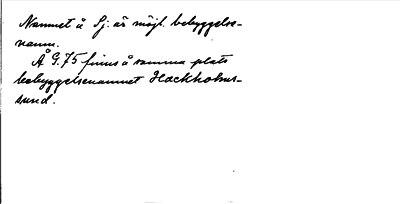 Namnet å Sj. är möjl. bebyggelse-
namn.
Å G.75 finns å samma plats
bebyggelsenamnet Hackholms-
sund.